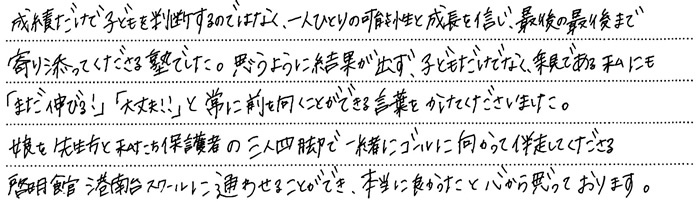 成績だけで子どもを判断するのではなく、一人ひとりの可能性と成長を信じ、最後の最後まで
寄り添ってくださる塾でした。思うように結果が出ず、子どもだけでなく、親である私にも
「まだ伸びる!」「大丈夫!!」と常に前を向くことができる言葉をかけてくださいました。
娘を先生方と私たち保護者の三人四脚で一緒にゴールに向かって伴走してくださる
啓明館港南台スクールに通わせることができ、本当に良かったと心から思っております。